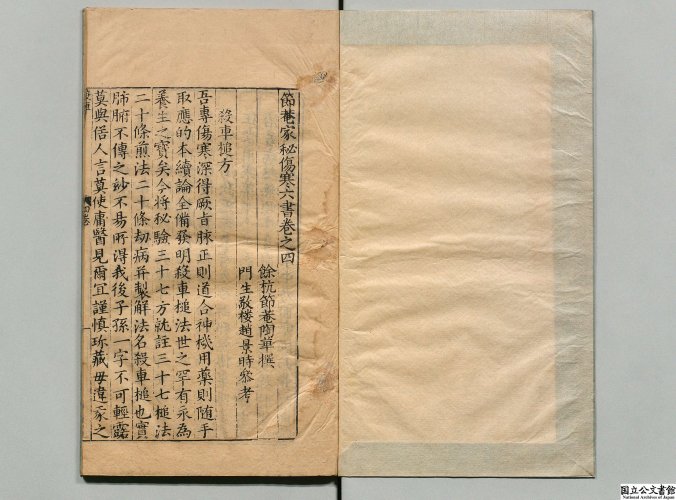 節菴家秘傷寒六書卷之四
餘杭節菴陶華撰
門生敬楼趙景時參考
殺車槌方
吾專傷寒深得厥旨脉正則道合神機用藥則随手
取應的本續論全備發明殺車槌法世之罕有永為
養生之寶矣今将秘驗三十七方就註三十七槌法
二十條煎法二十條刼病并製解法名殺車槌也實
肺腑不傳之紗不易所得我後子孫一字不可輕露
莫與俗人言莫使庸醫見爾宜謹慎珎藏毋違家之
殺車
四卷
一
国立公文書館
National Archives of Japan